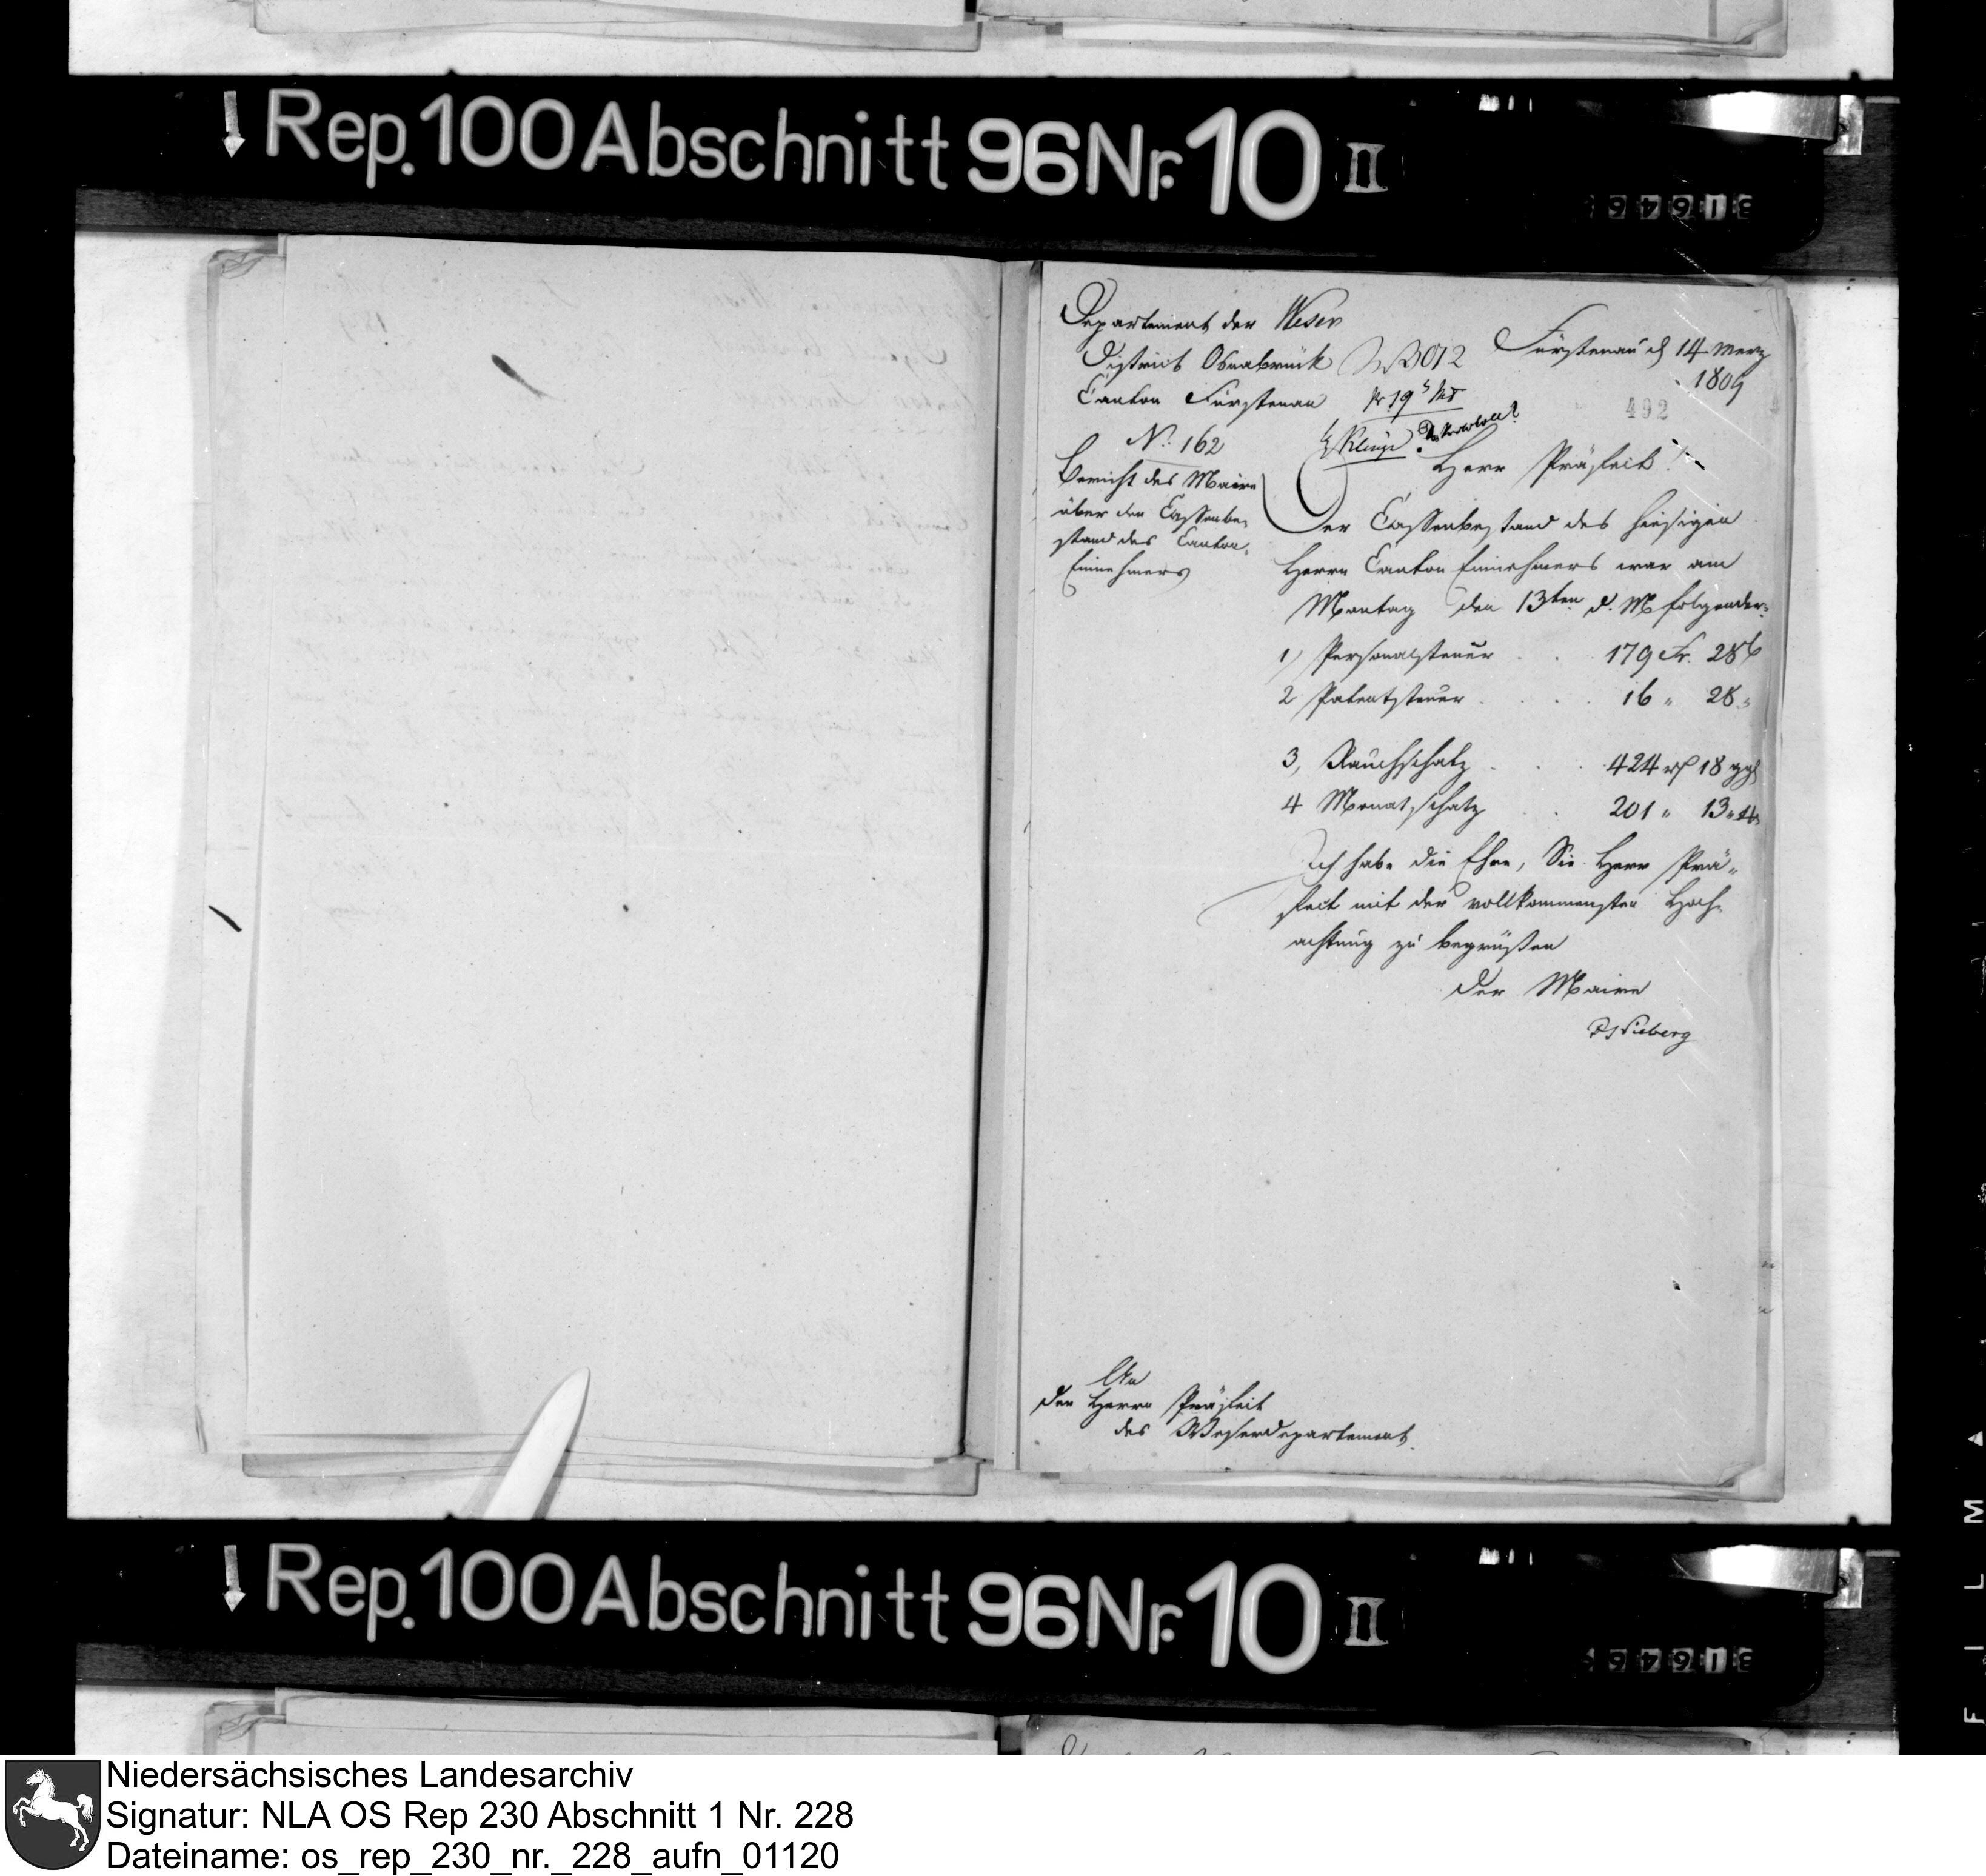 Rep. 100 Abschnitt 96 Nr. 10 II
Departement der Weser
District Osnabrück
Canton Fürstenau
Fürstenau d 14 Merz
1809
492
N. 162
Bericht des Maire
über den Cassenbe-
stand des Canton-
Einnehmers
Herr Präfect!
Der Cassenbestand des hiesigen
Herrn Canton Einnehmers war am
Montag den 13ten d. M folgender:
1) Personalsteuer . . 179 Fr. 28
2 Patentsteuer . . . 16 " 28
3, Rauchschatz . . . 424 rℓ 18 ggl
4 Monatschatz . . 201 " 13 " 4
Ich habe die Ehre, Sie Herr Prä-
fect mit der vollkommensten Hoch-
achtung zu begrüßen
Der Maire
Sieberg
An
den Herrn Präfect
des Weserdepartement.
Rep. 100 Abschnitt 96 Nr. 10 II
FILM
Niedersächsisches Landesarchiv
Signatur: NLA OS Rep 230 Abschnitt 1 Nr. 228
Dateiname: os_rep_230_nr._228_aufn_01120